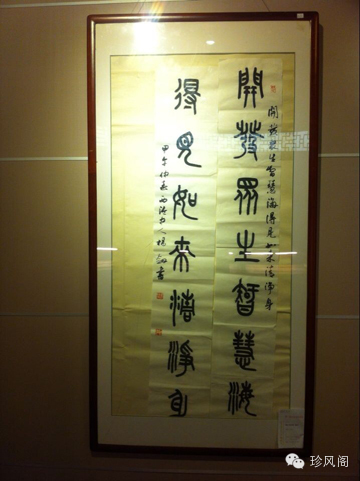 開發眾生智慧海得見如來清淨身
開發眾生智慧海
得見如來清淨身
甲午仲春西泠人楊書
珍风阁